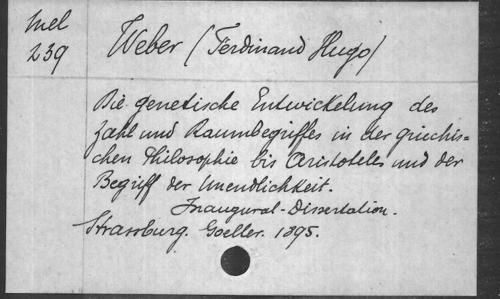 Mel
239
Weber (Ferdinand Hugo)
Die genetische Entwickelung des
Zahl und Raumbegriffes in der griechis=
chen Philosophie bis Aristoteles und der
Begriff der Unendlichkeit.
Inaugural-Dissertation.
Strassburg. Goeller. 1895.